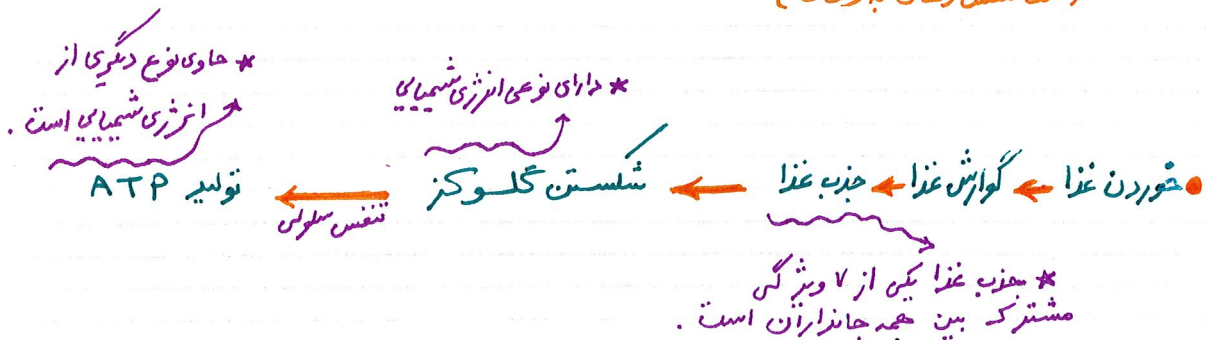 * حاوی نوع دیگری از
انرژی شیمیایی است.
* دارای نوعی انرژی شیمیایی
• خوردن غذا ← گوارش غذا ← جذب غذا ← شکستن گلوکز ← تولید ATP
تنفس سلولی
* جذب غذا یکی از ۷ ویژگی
مشترک بین همه جانداران است.